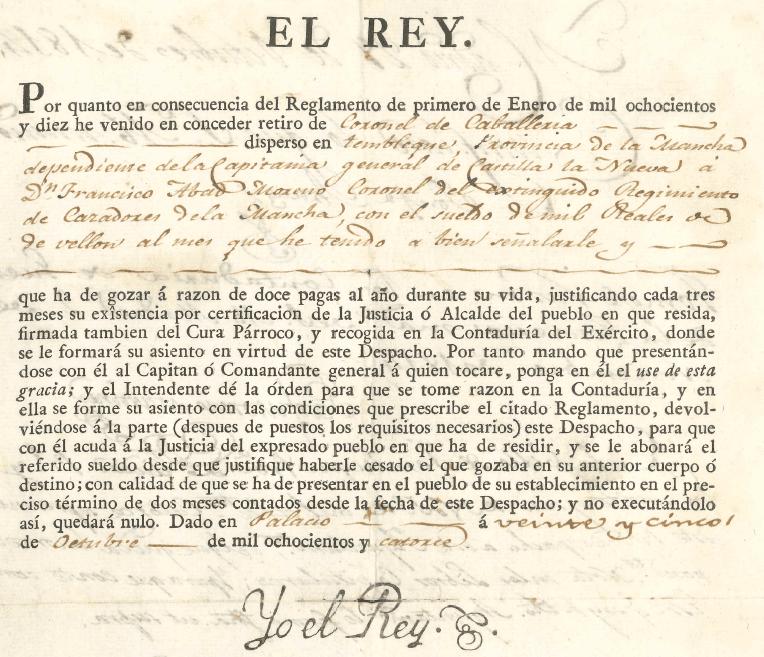 EL REY.
Por quanto en consecuencia del Reglamento de primero de Enero de mil ochocientos
y diez he venido en conceder retiro de Coronel de Caballeria
disperso en tembleque, Provincia de la Mancha
dependiente de la Capitania general de Castilla la Nueva á
Dn. Francisco Abad Moreno Coronel del extinguido Regimiento
de Cazadores de la Mancha, con el sueldo de mil Reales
de vellon al mes que he tenido a bien señalarle y
que ha de gozar á razon de doce pagas al año durante su vida, justificando cada tres
meses su existencia por certificacion de la Justicia ó Alcalde del pueblo en que resida,
firmada tambien del Cura Párroco, y recogida en la Contaduría del Exército, donde
se le formará su asiento en virtud de este Despacho. Por tanto mando que presentán-
dose con él al Capitan ó Comandante general á quien tocare, ponga en él el use de esta
gracia; y el Intendente dé la órden para que se tome razon en la Contaduría, y en
ella se forme su asiento con las condiciones que prescribe el citado Reglamento, devol-
viéndose á la parte (despues de puestos los requisitos necesarios) este Despacho, para que
con él acuda á la Justicia del expresado pueblo en que ha de residir, y se le abonará el
referido sueldo desde que justifique haberle cesado el que gozaba en su anterior cuerpo ó
destino; con calidad de que se ha de presentar en el pueblo de su establecimiento en el pre-
ciso término de dos meses contados desde la fecha de este Despacho; y no executándolo
así, quedará nulo. Dado en Palacio á veinte y cinco
de Octubre de mil ochocientos y catorce
Yo el Rey.